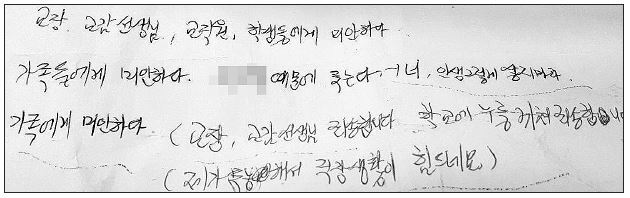 교장, 교감선생님, 교직원, 학생들에게 미안하다
가족들에게 미안하다. 때문에 죽는다. 너, 인생그렇게 살지마라
가족에게 미안하다. (교장, 교감선생님 죄송합니다 학교에 누를 끼쳐 죄송합니다
(제가 무능해서 직장생활이 힘드네요)